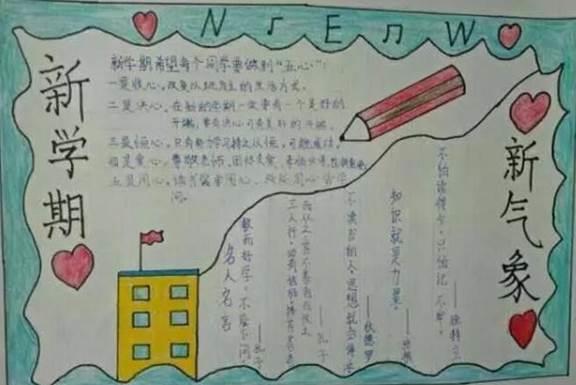 N E W
新学期
新气象
新学期希望每个同学要做到“五心”：
一是收心，改变以玩为主的生活方式。
二是决心，在新的学期一定要有一个良好的
开端，要有决心可有良好的开端。
三是恒心，只有努力学习持之以恒，可能成功。
四是爱心，尊敬老师、团结友爱、
五是用心，读书需要用心，
问。
名人名言
敏而好学，不耻下问
——孔子
三人行，必有我师，择其善者
而从之，其不善者而改之
——孔子
不读书的人，思想就会停止
——狄德罗
知识就是力量。
——培根
不怕读得少，只怕记不牢。
——徐特立